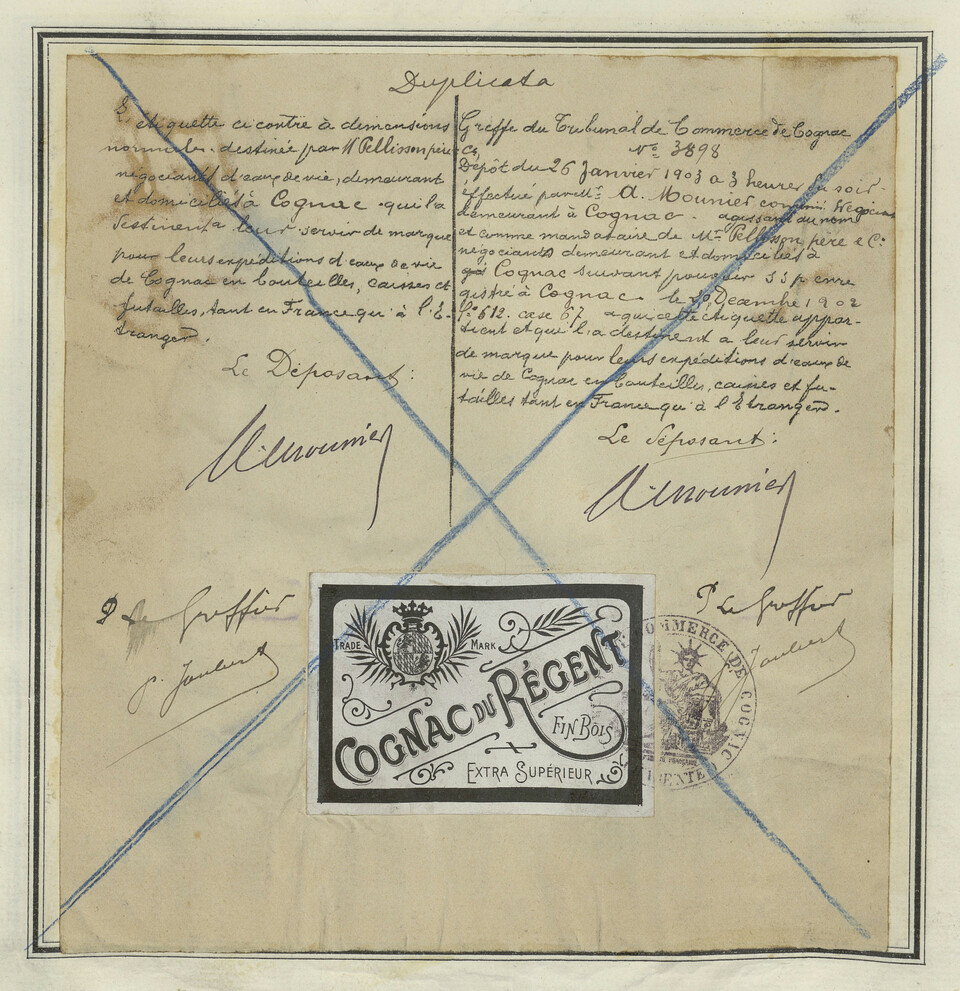 Duplicata
L'étiquette ci contre à dimensions
normales. destinée par M Pellisson père
& Co,
négociants d'eaux de vie, demeurant
et domiciliés à Cognac. qui la
destinent à leur servir de marque
pour leurs expéditions d'eaux de vie
de Cognac en bouteilles, caisses et
futailles, tant en France qu'à l'É-
tranger.
Le Déposant:
A. Mounier
P Le Greffier
P. Joubert
Greffe du Tribunal de Commerce de Cognac
No 3898
Dépôt du 26 Janvier 1903 à 3 heures du soir.
effectué par Mr A. Mounier commis Négociant
demeurant à Cognac. agissant au nom
et comme mandataire de Mr Pellisson père & Co
négociants demeurant et domiciliés à
Cognac suivant pouvoir s s p enre
gistré à Cognac le Décembre 1902
fo 612. case 67 a qui cette étiquette appar-
tient et qui l'a destinent a leur servir
de marque pour leurs expéditions d'eaux de
vie de Cognac en bouteilles, caisses et fu-
tailles tant en France qu'à l'Etranger.
Le Déposant:
A. Mounier
P Le Greffier
Joubert
TRADE MARK
COGNAC DU RÉGENT
FIN BOIS
EXTRA SUPÉRIEUR
COMMERCE DE COGNAC